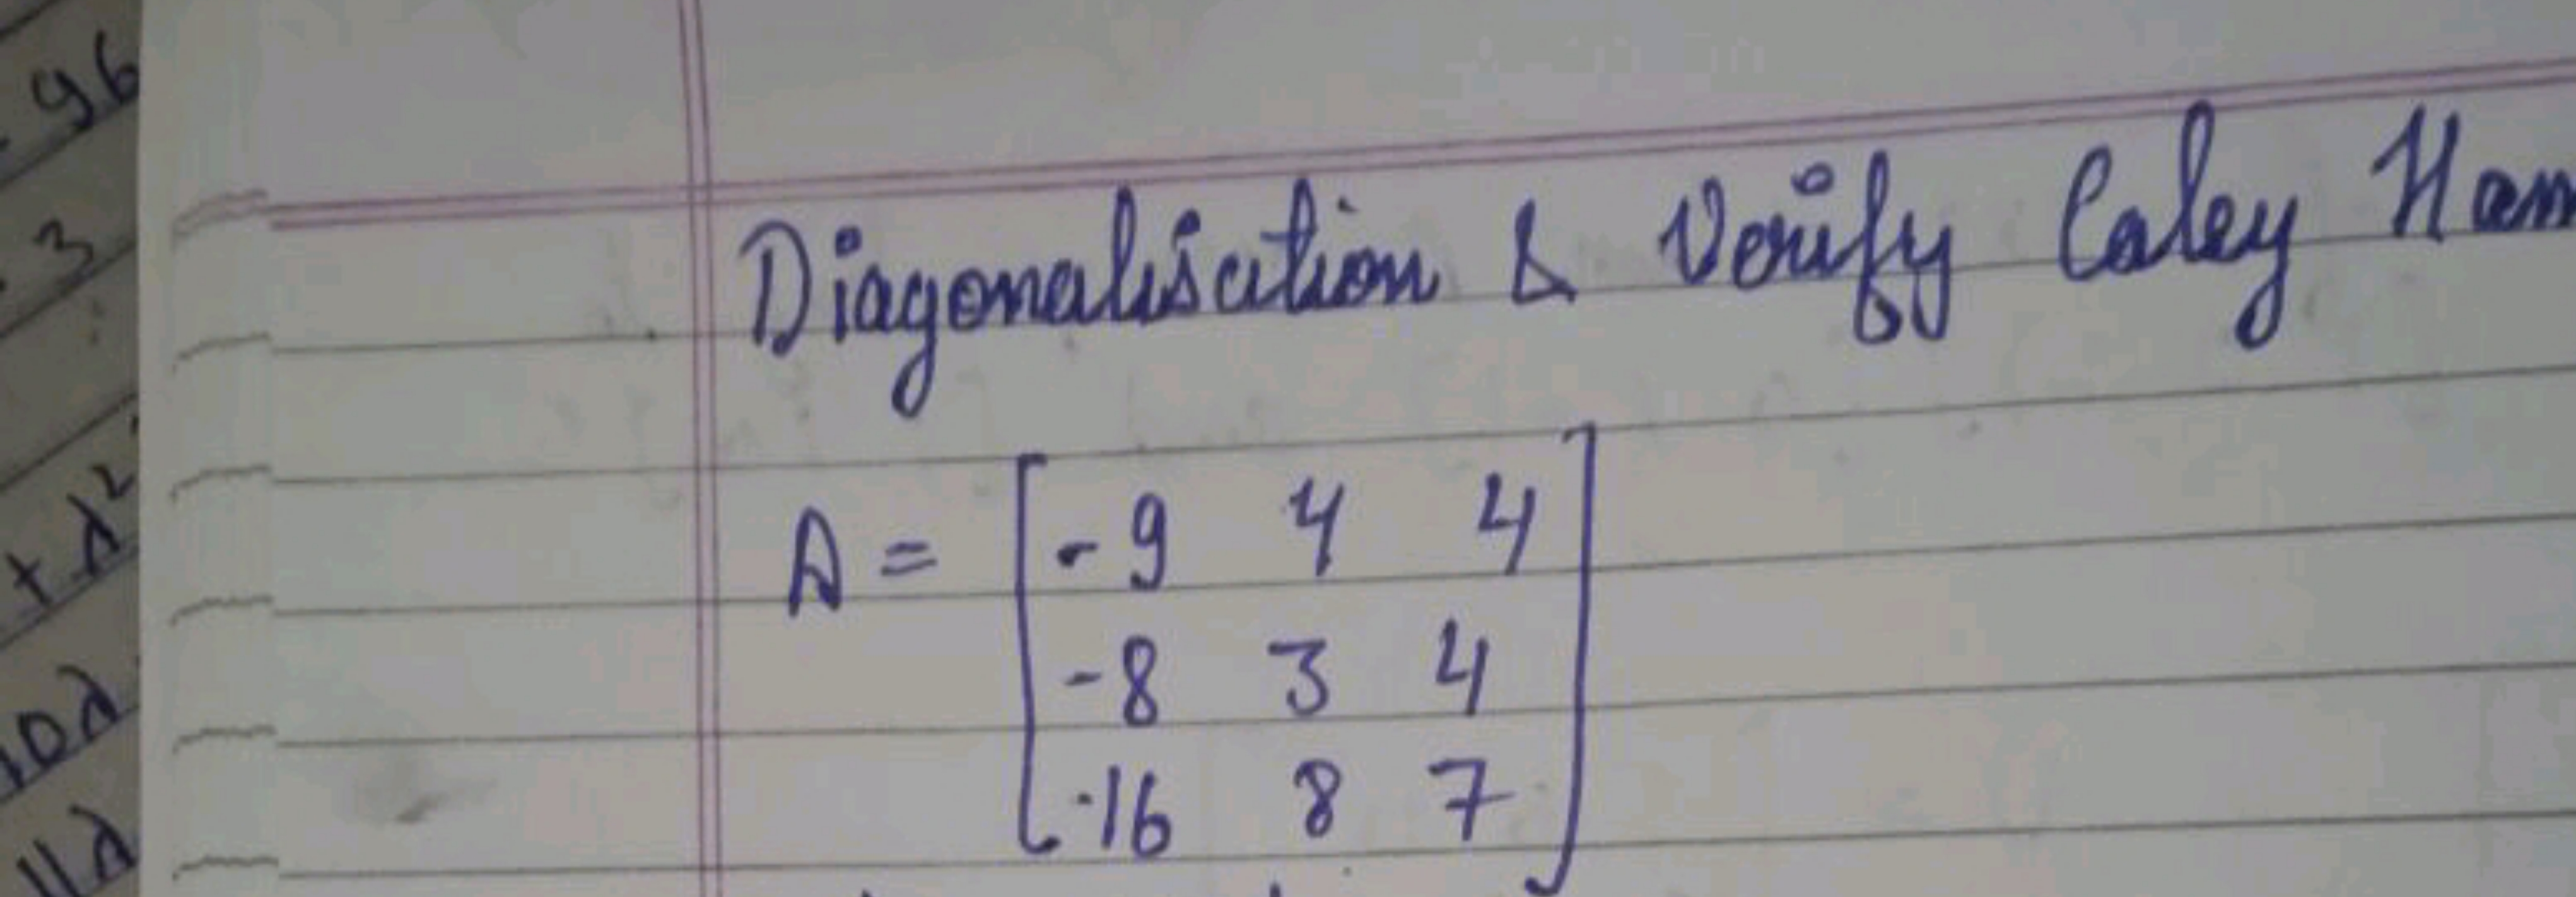 96
3
+ λ²
10λ
11λ
Diagonalisation & Verify Caley Ham
A = [ -9 4 4
-8 3 4
-16 8 7 ]